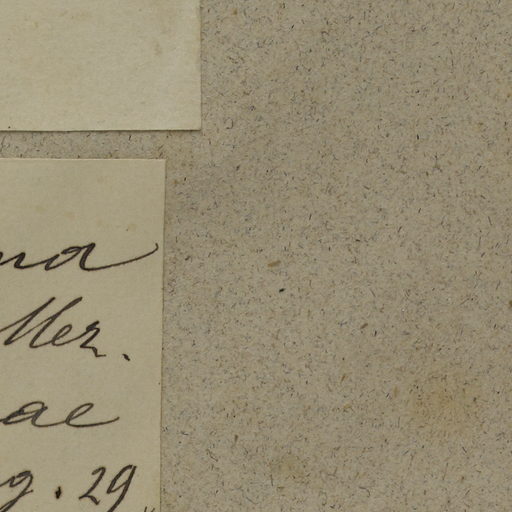 na
Mer.
ae
g. 29